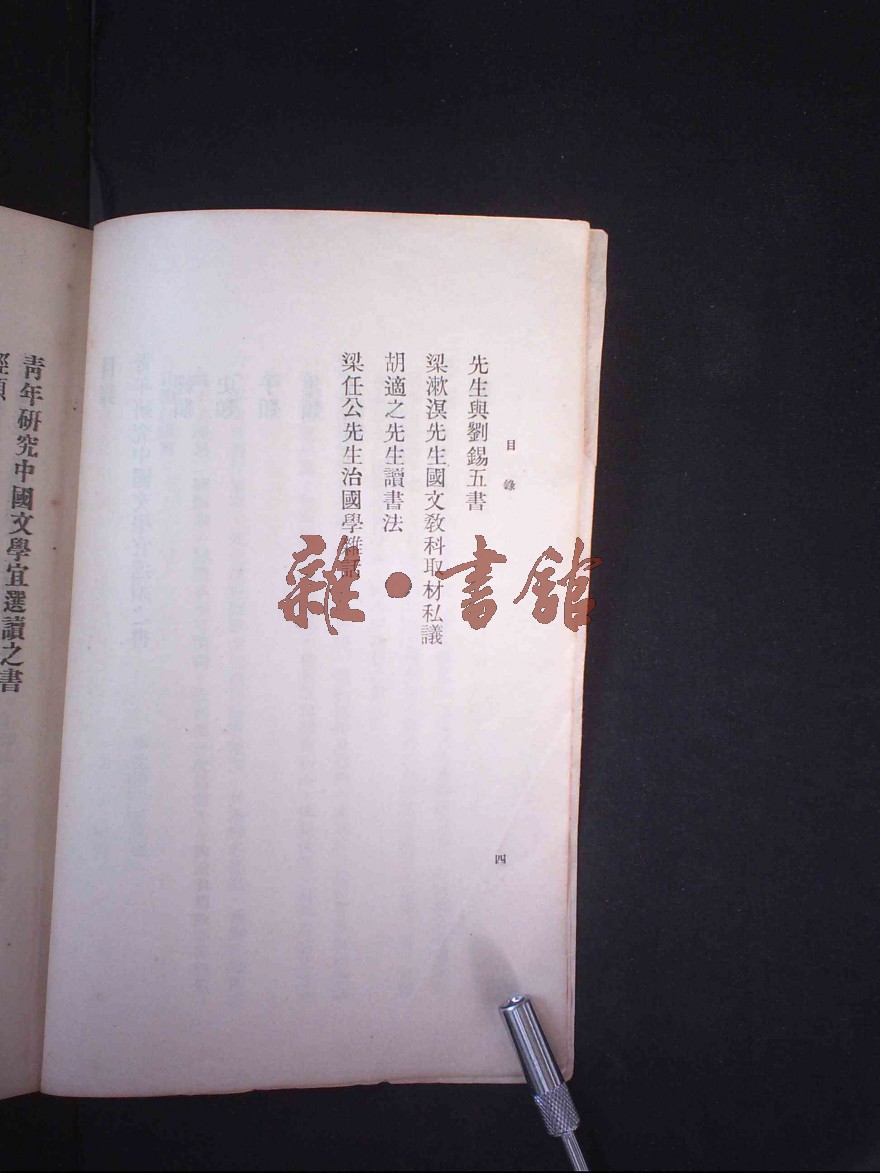 目錄
四
先生與劉錫五書
梁漱溟先生國文教科取材私議
胡適之先生讀書法
梁任公先生治國學雜話
青年研究中國文學宜選讀之書
經類
雜·書館